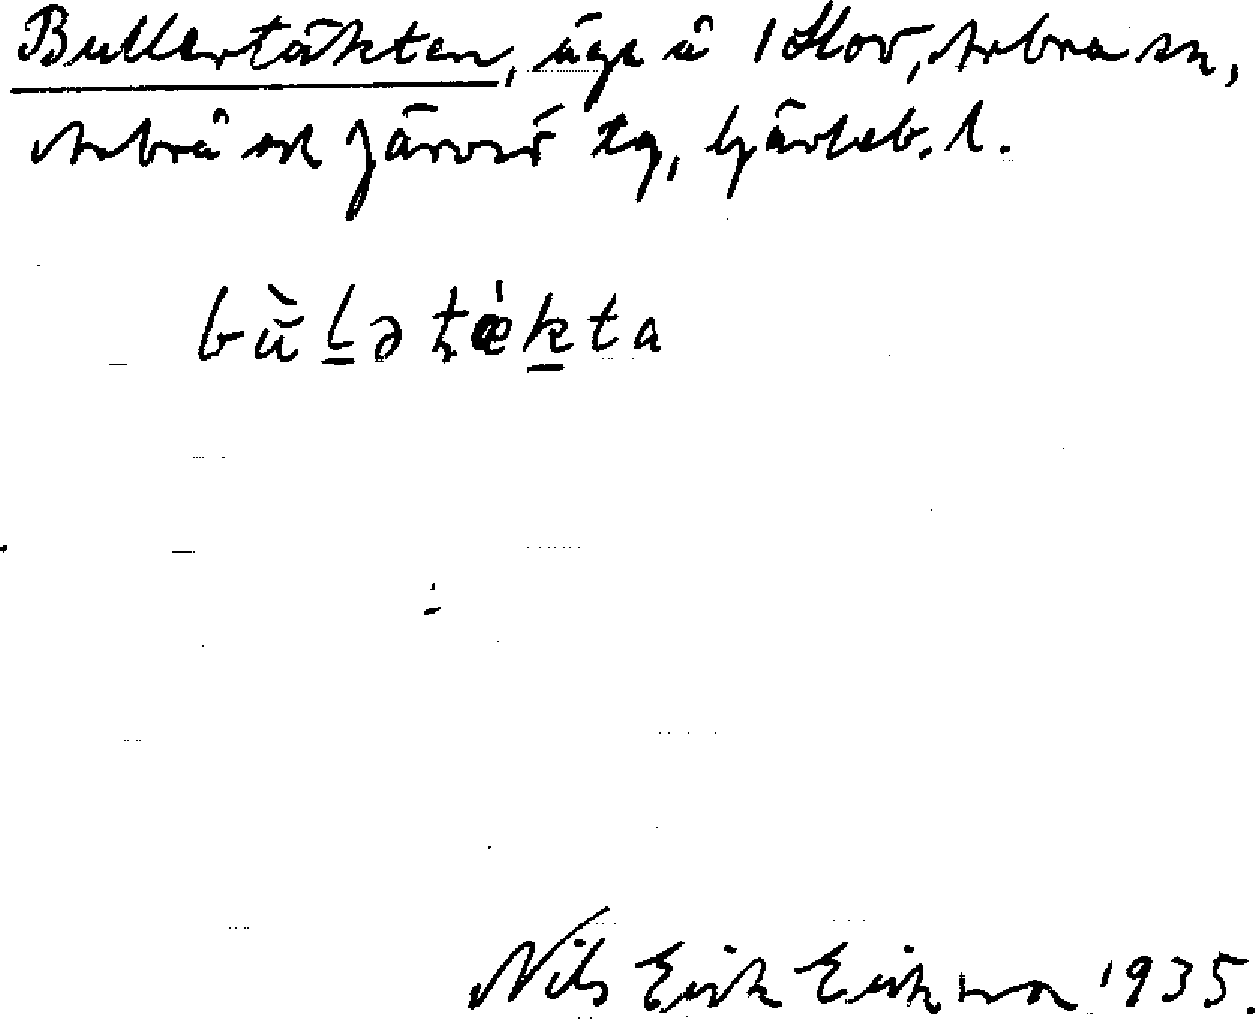 Bullertäkten, äga å 1 Flov, Arbrå sn,
Arbrå ok Järvsö tg, Gävleb. l.
bùl̠ətǽk̠ta
Nils Erik Eriksson 1935.